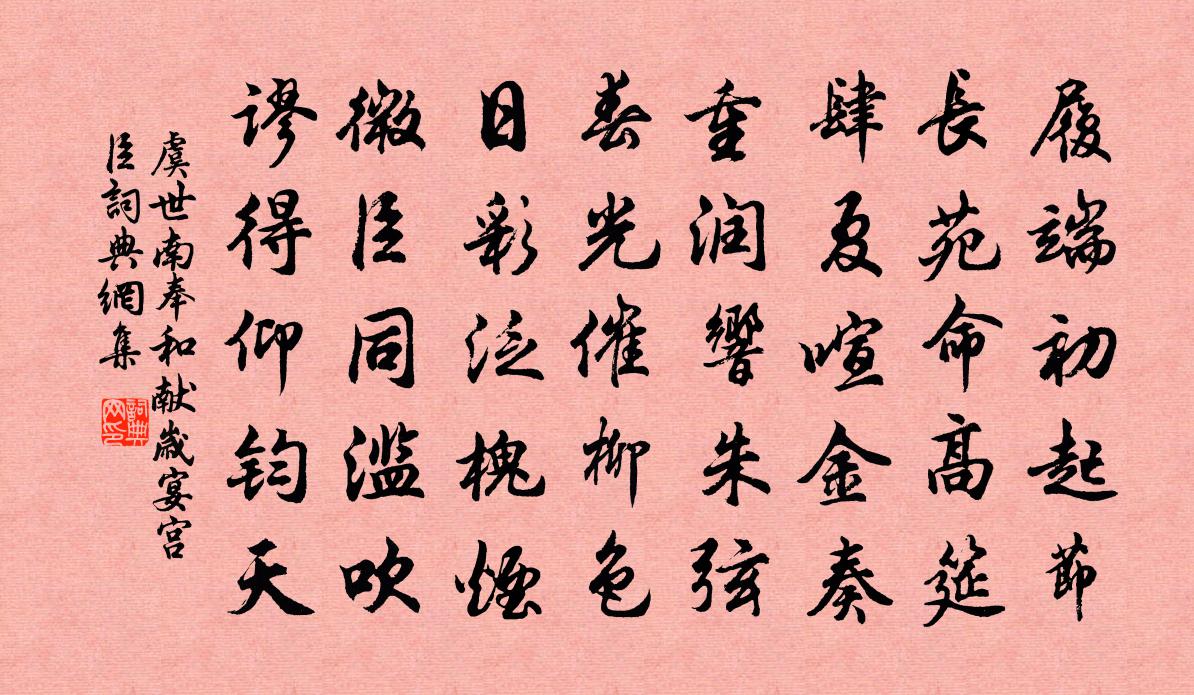 履端初起節
長苑命髙筵
肆夏喧金奏
重润響朱弦
春光催柳色
日彩泛槐煙
微臣同滥吹
谬得仰钧天
虞世南奉和献歲宴宫
臣詞典網集
詞典
网印